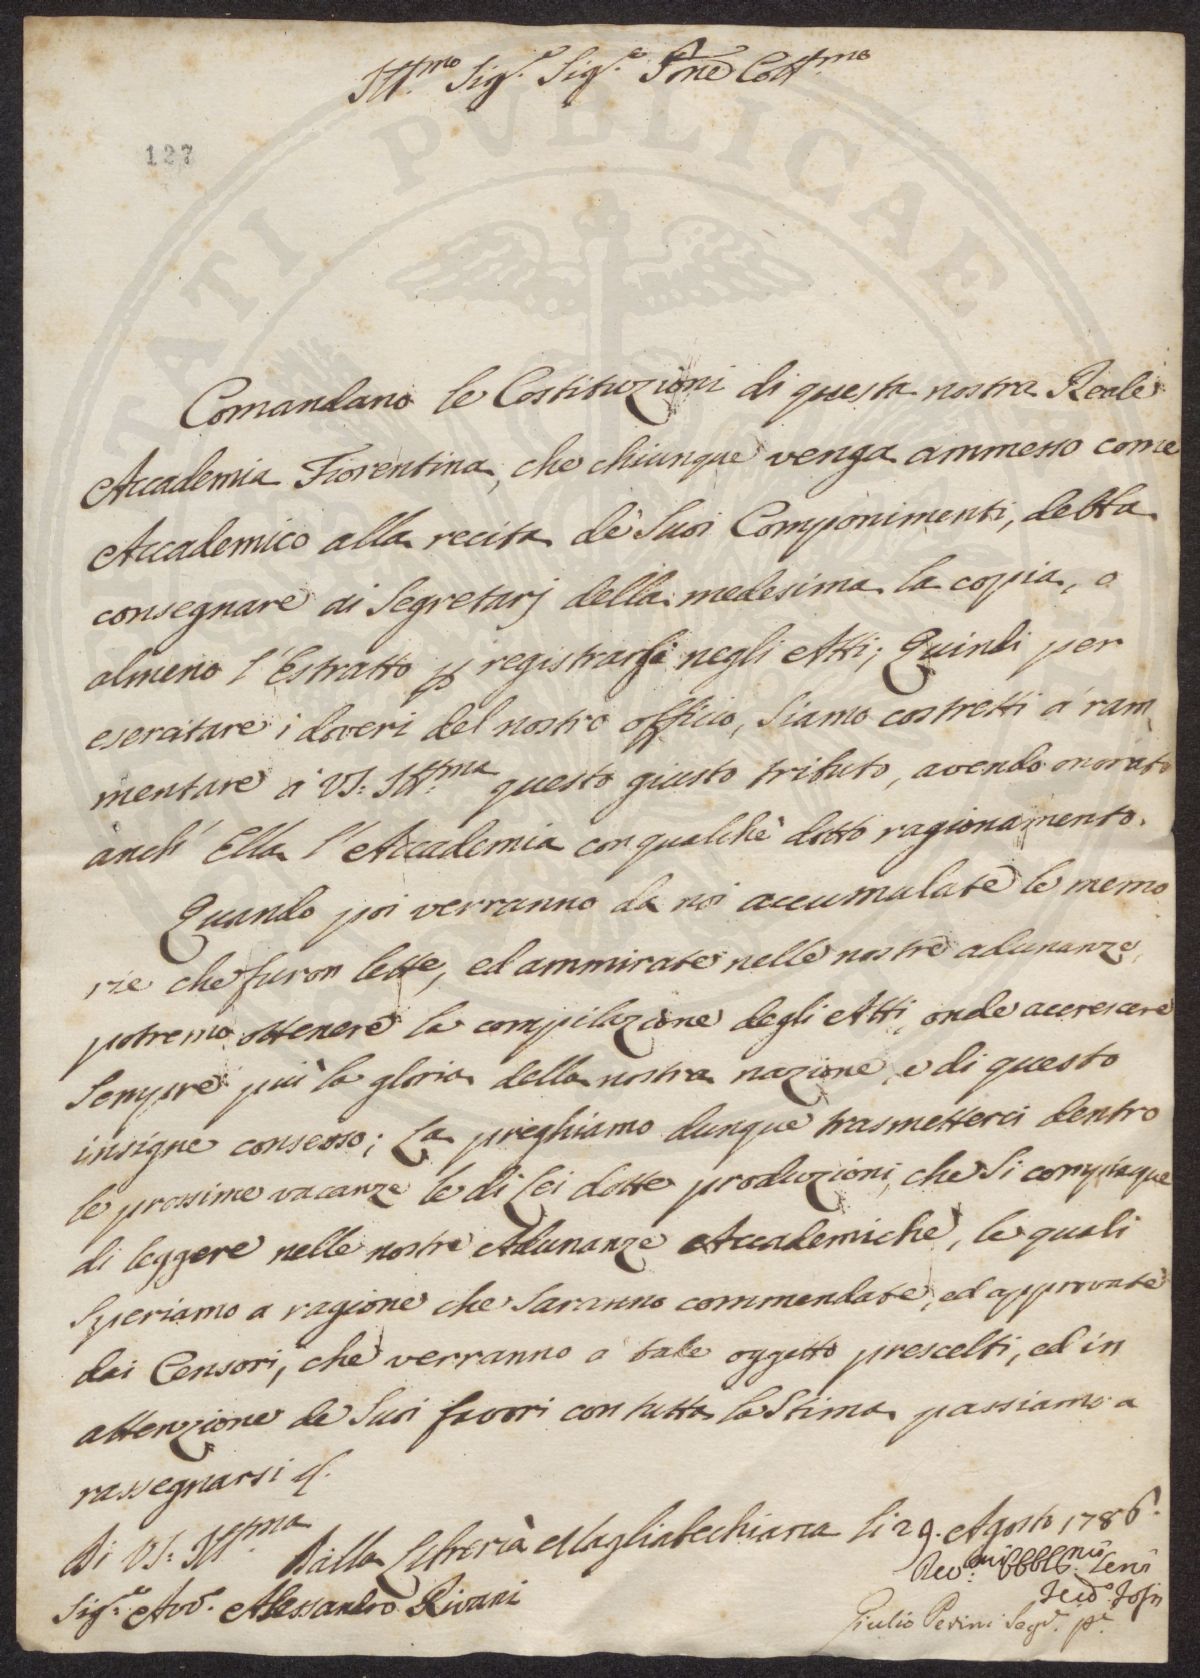 Ill.mo Sig.e Sig.e P̃ne Coll.mo
127
Comandano le Costituzioni di questa nostra Reale
Accademia Fiorentina, che chiunque venga ammesso come
Accademico alla recita de' Suoi Componimenti, debba
consegnare ai Segretarj della medesima la copia, o
almeno l'Estratto p registrarsi negli Atti; Quindi per
esercitare i doveri del nostro officio, Siamo costretti a ram
mentare a VS: Ill.ma questo giusto tributo, avendo onorato
anch' Ella l'Accademia con qualche dotto ragionamento.
Quando poi verranno da noi accumulate le memo
rie che furon lette, ed ammirate nelle nostre adunanze,
potremo ottenere la compilazione degli Atti, onde accrescere
Sempre più la gloria della nostra nazione, e di questo
insigne consesso; La preghiamo dunque trasmetterci dentro
le prossime vacanze le di Lei dotte produzioni, che Si compiacque
di leggere nelle nostre Adunanze Accademiche, le quali
Speriamo a ragione che Saranno commendate, ed approvate
dai Censori, che verranno a tale oggetto prescelti, ed in
attenzione de Suoi favori con tutta la Stima passiamo a
rassegnarsi
Di VS: Ill.ma Dalla Libreria Magliabechiana li 29. Agosto 1786.
Sig.e Avv.o Alessandro Rivani
Giulio Perini Seg.o
PUBLICAE